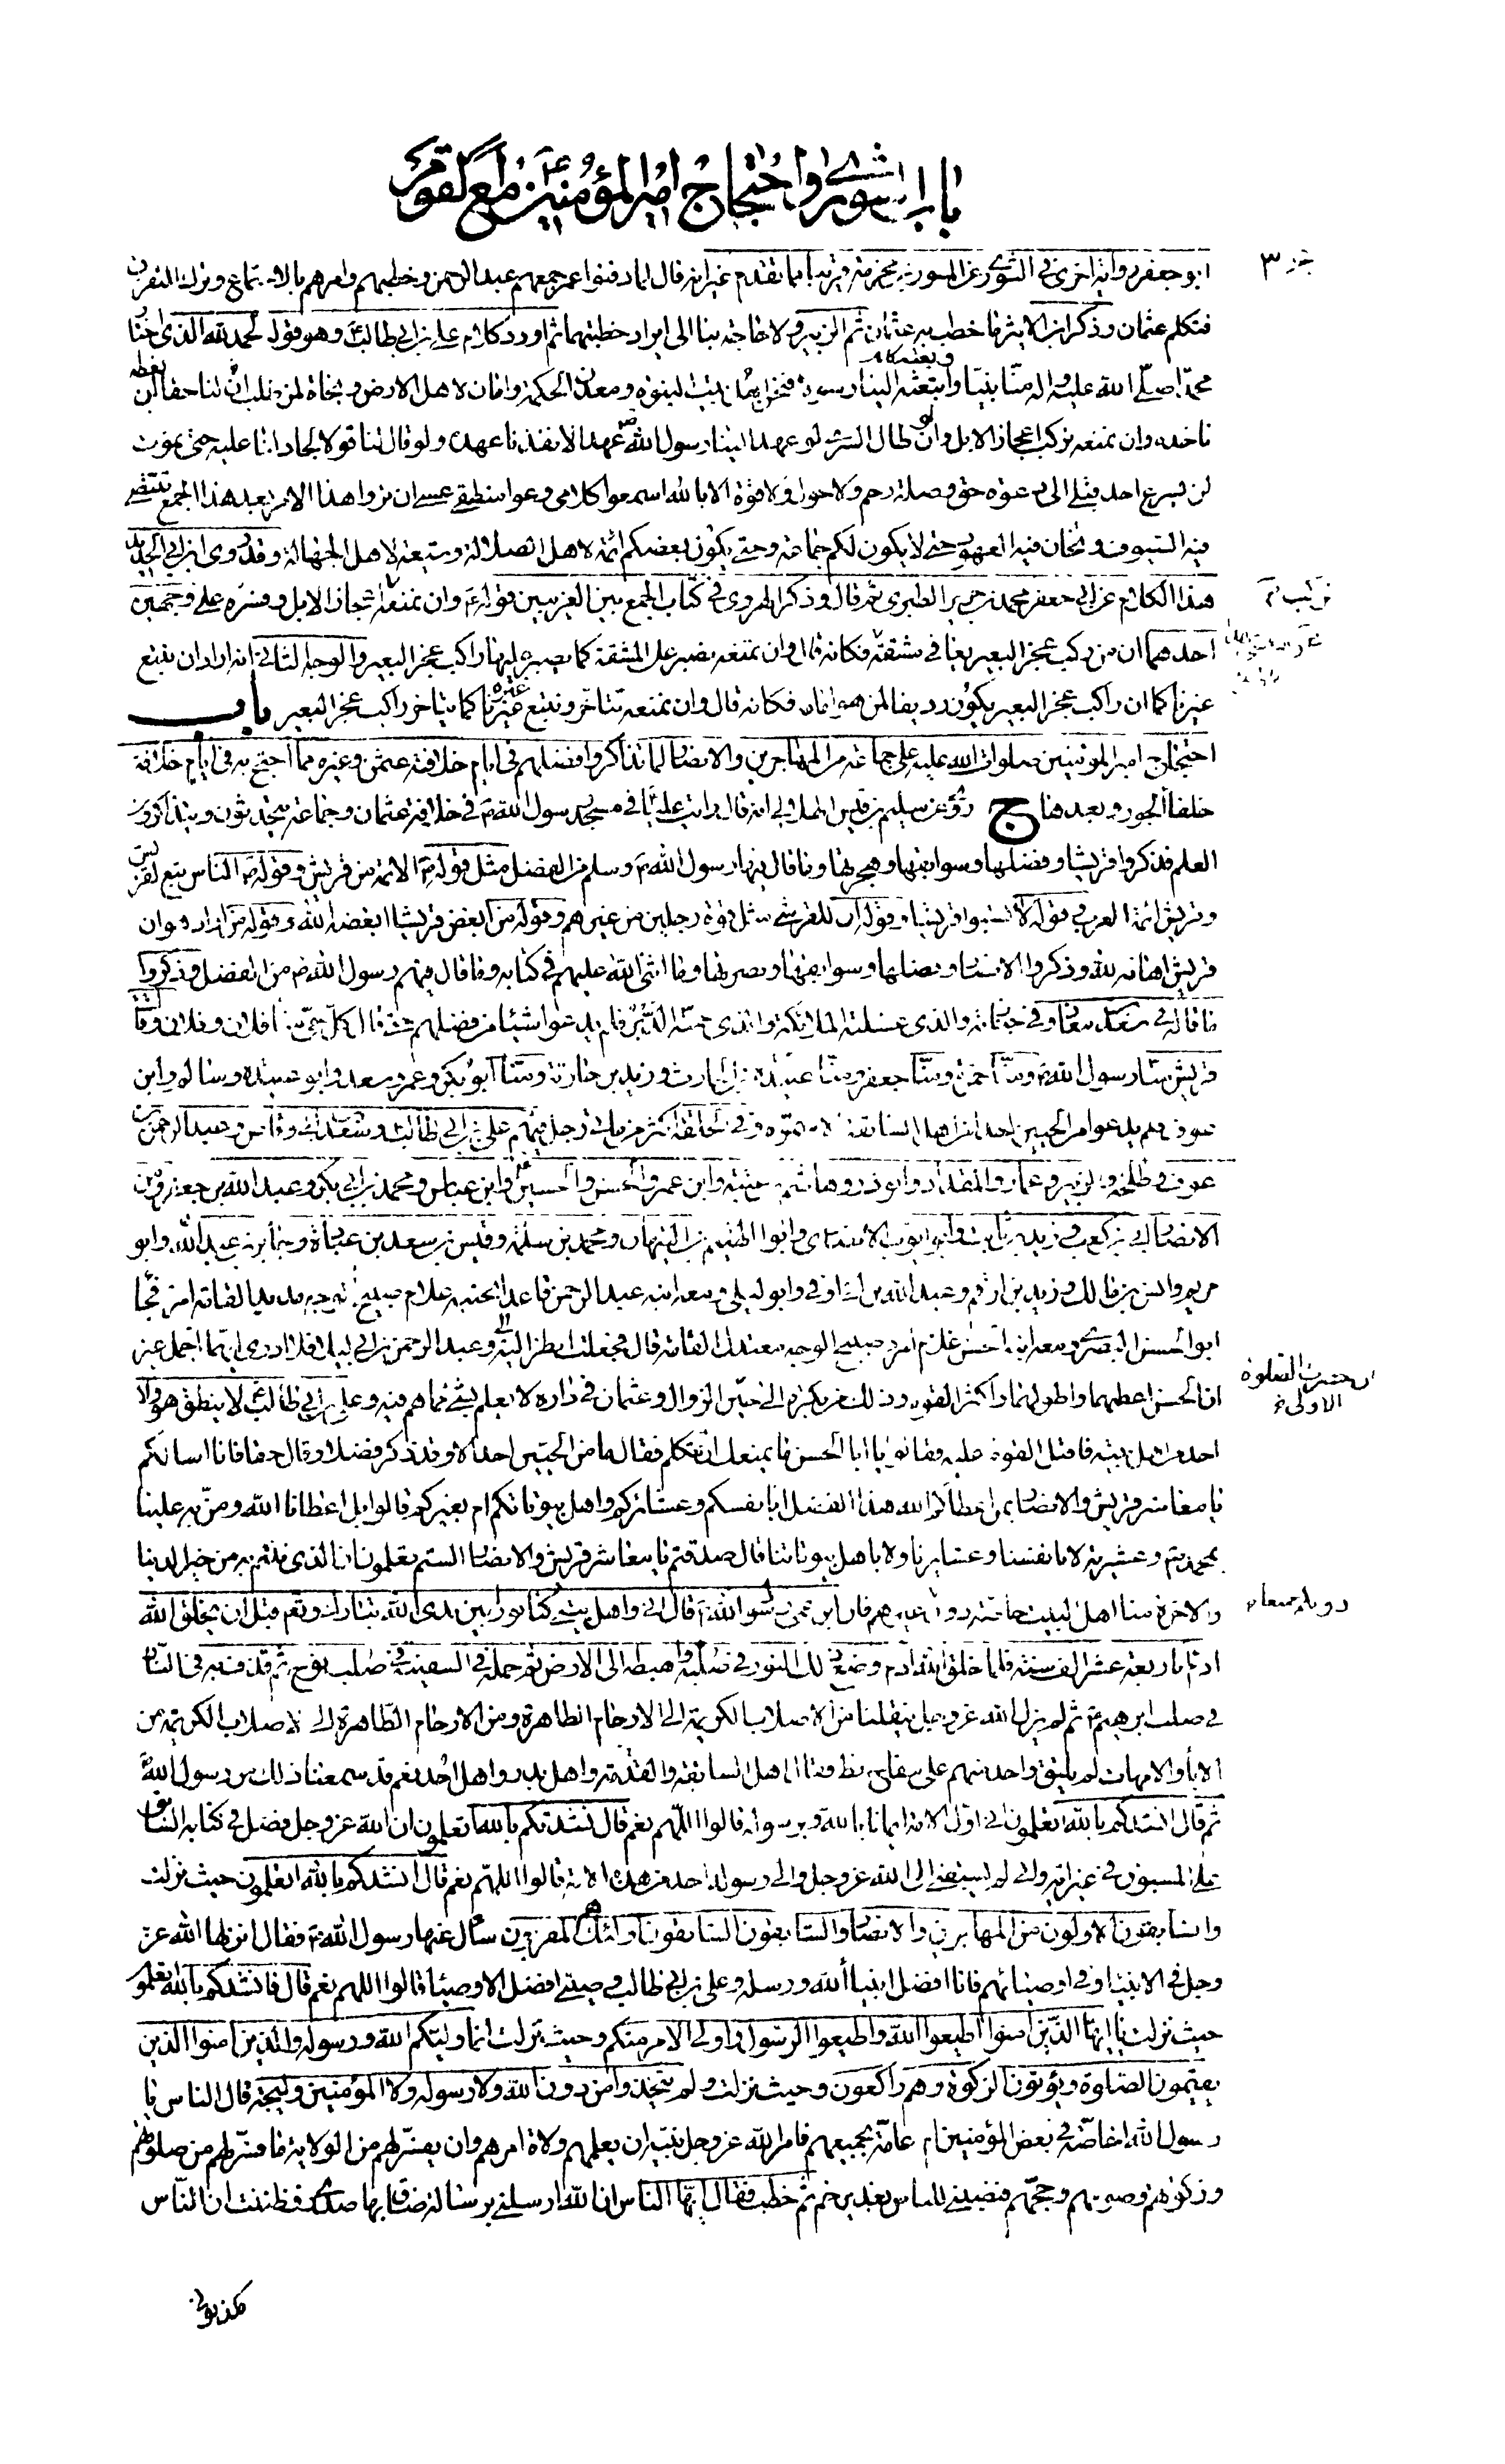 باب الشورى واحتجاج امير المؤمنين مع القوم
جزء ٣
ابو جعفر رواية اخرى في الشورى عن المسور بن مخرمة قريبا مما تقدم غير انه قال لما دفنوا عمر جمعهم عبد الرحمن وخطبهم وامرهم بالاجتماع وترك التفرق
فتكلم عثمان وذكر ابن الاثير ما خطب به عثمان ثم الزبير ولا حاجة بنا الى ايراد خطبتهما ثم اورد كلام علي بن ابي طالب وهو قوله الحمد لله الذي اختار
محمدا صلى الله عليه واله منا نبيا وابتعثه الينا رسولا فنحن بيت النبوة ومعدن الحكمة وامان لاهل الارض ونجاة لمن طلب ان لنا حقا ان نعطه
ناخذه وان نمنعه نركب اعجاز الابل وان طال السرى لو عهد الينا رسول الله ص عهدا لانفذنا عهده ولو قال لنا قولا لجادلنا عليه حتى نموت
لن يسرع احد قبلي الى دعوة حق وصلة رحم ولا حول ولا قوة الا بالله اسمعوا كلامي وعوا منطقي عسى ان تروا هذا الامر بعد هذا الجمع تنتضى
فيه السيوف وتخان فيه العهود حتى لا يكون لكم جماعة وحتى يكون بعضكم ائمة لاهل الضلالة وشيعة لاهل الجهالة وقد روى ابن ابي الحديد
هذا الكلام عن ابي جعفر محمد بن جرير الطبري ثم قال وذكر الهروي في كتاب الجمع بين الغريبين قوله وان نمنعه نركب اعجاز الابل وفسره على وجهين
نركب
احدهما ان من ركب عجز البعير يعاني مشقة فكانه قال وان نمنعه نصبر على المشقة كما يصبر عليها راكب عجز البعير والوجه الثاني انه اراد ان نتبع
غيرنا كما ان راكب عجز البعير يكون رديفا لمن هو امامه فكانه قال وان نمنعه نتاخر ونتبع غيرنا كما يتاخر راكب عجز البعير باب
احتجاج امير المؤمنين صلوات الله عليه على جماعة من المهاجرين والانصار لما تذاكروا فضلهم في ايام خلافة عثمن وغيره مما احتج به في ايام خلافة
خلفاء الجور وبعدها ج روى عن سليم بن قيس الهلالي انه قال رايت عليا في مسجد رسول الله في خلافة عثمان وجماعة يتحدثون ويتذاكرون
العلم فذكروا قريشا وفضلها وسوابقها وهجرتها وما قال فيها رسول الله وسلم من الفضل مثل قوله الائمة من قريش وقوله الناس تبع لقريش
وقريش ائمة العرب وقوله لا تسبوا قريشا وقوله ان للقرشي مثل قوة رجلين من غيرهم وقوله من ابغض قريشا ابغضه الله وقوله من اراد هوان
قريش اهانه الله وذكروا الانصار وفضلها وسوابقها ونصرتها وما اثنى الله عليهم في كتابه وما قال فيهم رسول الله ص من الفضل وذكروا
ما قاله في سعد بن معاذ وفي جنازته والذي غسلته الملائكة والذي حمته الدبر فلم يدعوا شيئا من فضلهم حتى قال كل حي منا فلان وفلان وقالت
قريش منا رسول الله ومنا حمزة ومنا جعفر ومنا عبيدة بن الحارث وزيد بن حارثة ومنا ابو بكر وعمر وسعد وابو عبيدة وسالم وابن
عوف فلم يدعوا من الحيين احدا من اهل السابقة الا سموه وفي الحلقة اكثر من مائتي رجل فيهم علي بن ابي طالب وسعد بن ابي وقاص وعبد الرحمن بن
عوف وطلحة والزبير وعمار والمقداد وابو ذر وهاشم بن عتبة وابن عمر والحسن والحسين وابن عباس ومحمد بن ابي بكر وعبد الله بن جعفر ومن
الانصار ابي بن كعب وزيد بن ثابت وابو ايوب الانصاري وابو الهيثم بن التيهان ومحمد بن سلمة وقيس بن سعد بن عبادة وجابر بن عبد الله وابو
مريم وانس بن مالك وزيد بن ارقم وعبد الله بن ابي اوفى وابو ليلى ومعه ابنه عبد الرحمن قاعدا بجنبه غلام صبيح الوجه مديد القامة امرد فجاء
ابو الحسن البصري ومعه ابنه الحسن غلام امرد صبيح الوجه معتدل القامة قال فجعلت انظر اليه والى عبد الرحمن بن ابي ليلى فلا ادري ايهما اجمل غير
ان الحسن اعظمهما واطولهما واكثر القوم وذلك من بكرة الى حين الزوال وعثمان في داره لا يعلم بشيء مما هم فيه وعلي بن ابي طالب لا ينطق هو ولا
الى حضرت الصلوة
الاولى
احد من اهل بيته فاقبل القوم عليه فقالوا يا ابا الحسن ما يمنعك ان تتكلم فقال ما من الحيين احد الا وقد ذكر فضلا وقال حقا فانا اسالكم
يا معاشر قريش والانصار بمن اعطاكم الله هذا الفضل ابانفسكم وعشائركم واهل بيوتاتكم ام بغيركم قالوا بل اعطانا الله ومن به علينا
بمحمد وعشيرته لا بانفسنا وعشايرنا ولا باهل بيوتاتنا قال صدقتم يا معاشر قريش والانصار الستم تعلمون ان الذي نلتم به من خير الدنيا
والاخرة منا اهل البيت خاصة دون غيرهم فان ابن عمي رسول الله قال اني واهل بيتي كنا نورا بين يدي الله تبارك وتعالى قبل ان يخلق الله
ادم باربعة عشر الف سنة فلما خلق الله ادم وضع ذلك النور في صلبه واهبطه الى الارض ثم حمله في السفينة في صلب نوح ثم قذف به في النار
في صلب ابرهيم ثم لم يزل الله عز وجل ينقلنا من الاصلاب الكريمة الى الارحام الطاهرة ومن الارحام الطاهرة الى الاصلاب الكريمة من
الاباء والامهات لم يلتق واحد منهم على سفاح قط فقال اهل السابقة والقدمة واهل بدر واهل احد نعم قد سمعنا ذلك من رسول الله
ثم قال انشدكم بالله اتعلمون اني اول الامة ايمانا بالله وبرسوله قالوا اللهم نعم قال نشدتكم بالله اتعلمون ان الله عز وجل فضل في كتابه السابق
على المسبوق في غير اية واني لم يسبقني الى الله عز وجل والى رسوله احد من هذه الامة قالوا اللهم نعم قال انشدكم بالله اتعلمون حيث نزلت
والسابقون الاولون من المهاجرين والانصار والسابقون السابقون اولئك المقربون سئل عنها رسول الله فقال انزلها الله عز
وجل في الانبياء وفي اوصيائهم فانا افضل انبياء الله ورسله وعلي بن ابي طالب وصيي افضل الاوصياء قالوا اللهم نعم قال فانشدكم بالله اتعلمون
حيث نزلت يا ايها الذين امنوا اطيعوا الله واطيعوا الرسول واولي الامر منكم وحيث نزلت انما وليكم الله ورسوله والذين امنوا الذين
يقيمون الصلوة ويؤتون الزكوة وهم راكعون وحيث نزلت ولم يتخذوا من دون الله ولا رسوله ولا المؤمنين وليجة قال الناس يا
رسول الله اخاصة في بعض المؤمنين ام عامة بجميعهم فامر الله عز وجل نبيه ان يعلمهم ولاة امرهم وان يفسر لهم من الولاية ما فسر لهم من صلوتهم
وزكوتهم وصومهم وحجهم فنصبني للناس بغدير خم ثم خطب فقال ايها الناس ان الله ارسلني برسالة ضاق بها صدري فظننت ان الناس
مكذبوني